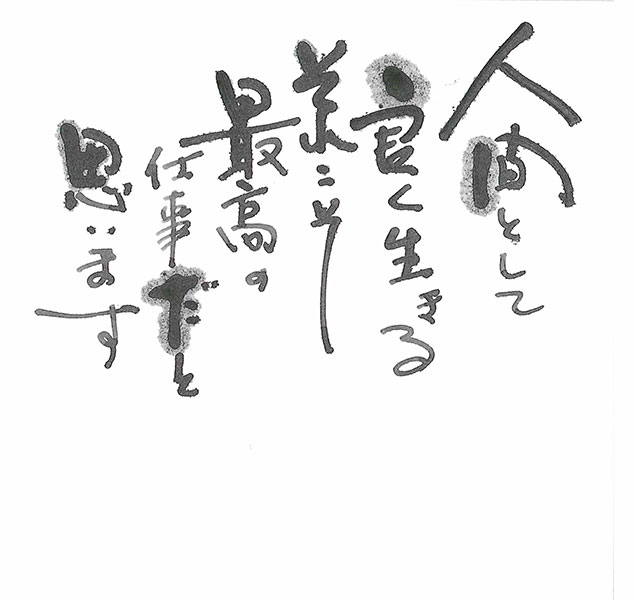 人間として
良く生きる
こそ
最高の
仕事だと
思います